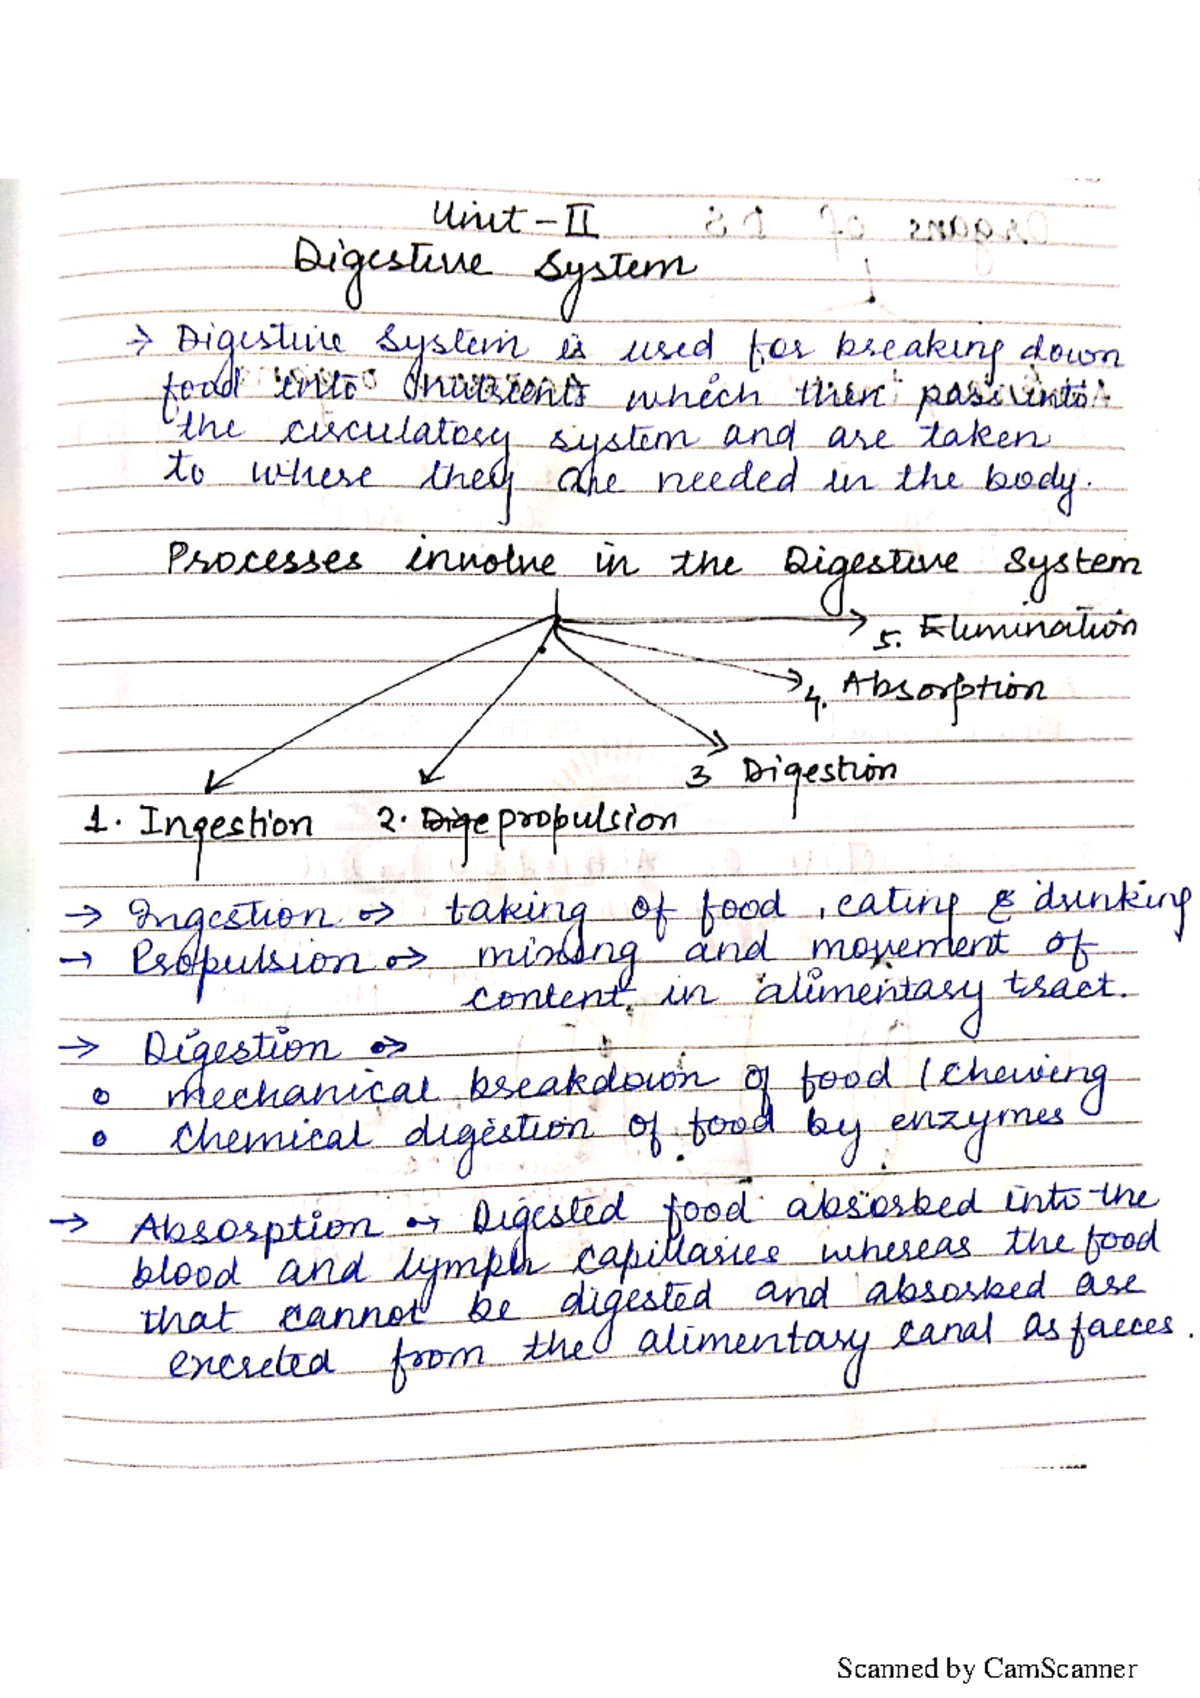 Unit - II
Digestive System
→ Digestive System is used for breaking down
food into nutrients which then pass into
the circulatory system and are taken
to where they are needed in the body.
Processes involve in the Digestive System
5. Elimination
4. Absorption
3 Digestion
1. Ingestion 2. Dige propulsion
→ Ingestion → taking of food, eating & drinking
→ Propulsion → mixing and movement of
content in alimentary tract.
→ Digestion →
o mechanical breakdown of food (Chewing
o Chemical digestion of food by enzymes
→ Absorption → Digested food absorbed into the
blood and lymph capillaries whereas the food
that cannot be digested and absorbed are
excreted from the alimentary canal as faeces.
Scanned by CamScanner